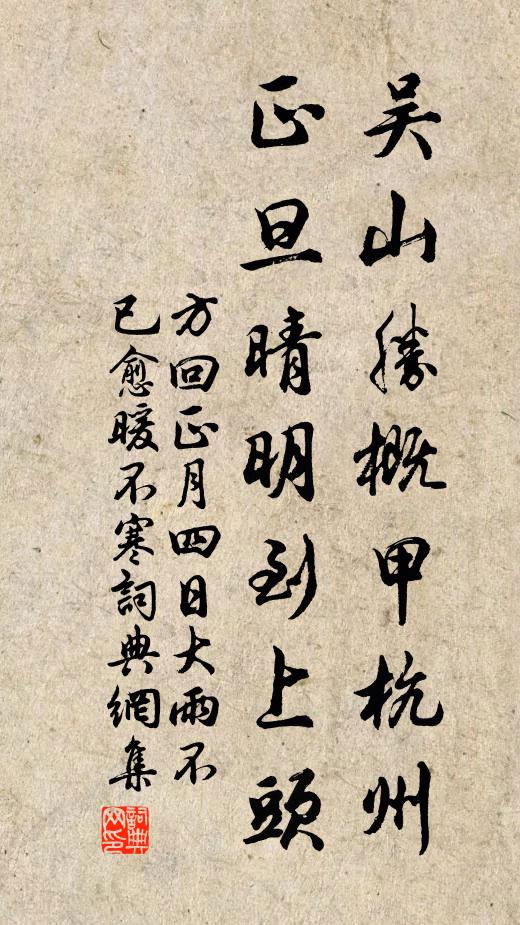 吴山勝概甲杭州
正旦晴明到上頭
方回正月四日大雨不
已愈暖不寒詞典網集
詞典
网印